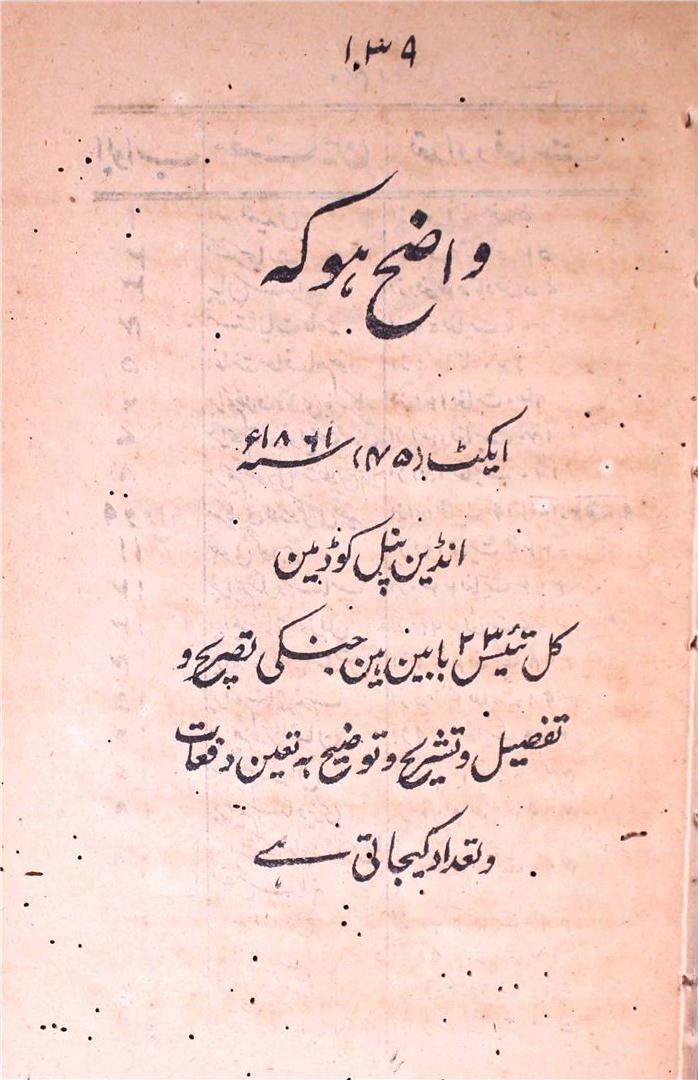 ۱۰۳۹
واضح ہو کہ
ایکٹ (۴۵) سنہ ۱۸۶۱ء
انڈین پنل کوڈ مین
کل تئیس ۲۳ بابین ہین جنکی تصریح و
تفصیل و تشریح و توضیح بہ تعین دفعات
و تعداد کیجاتی ہے